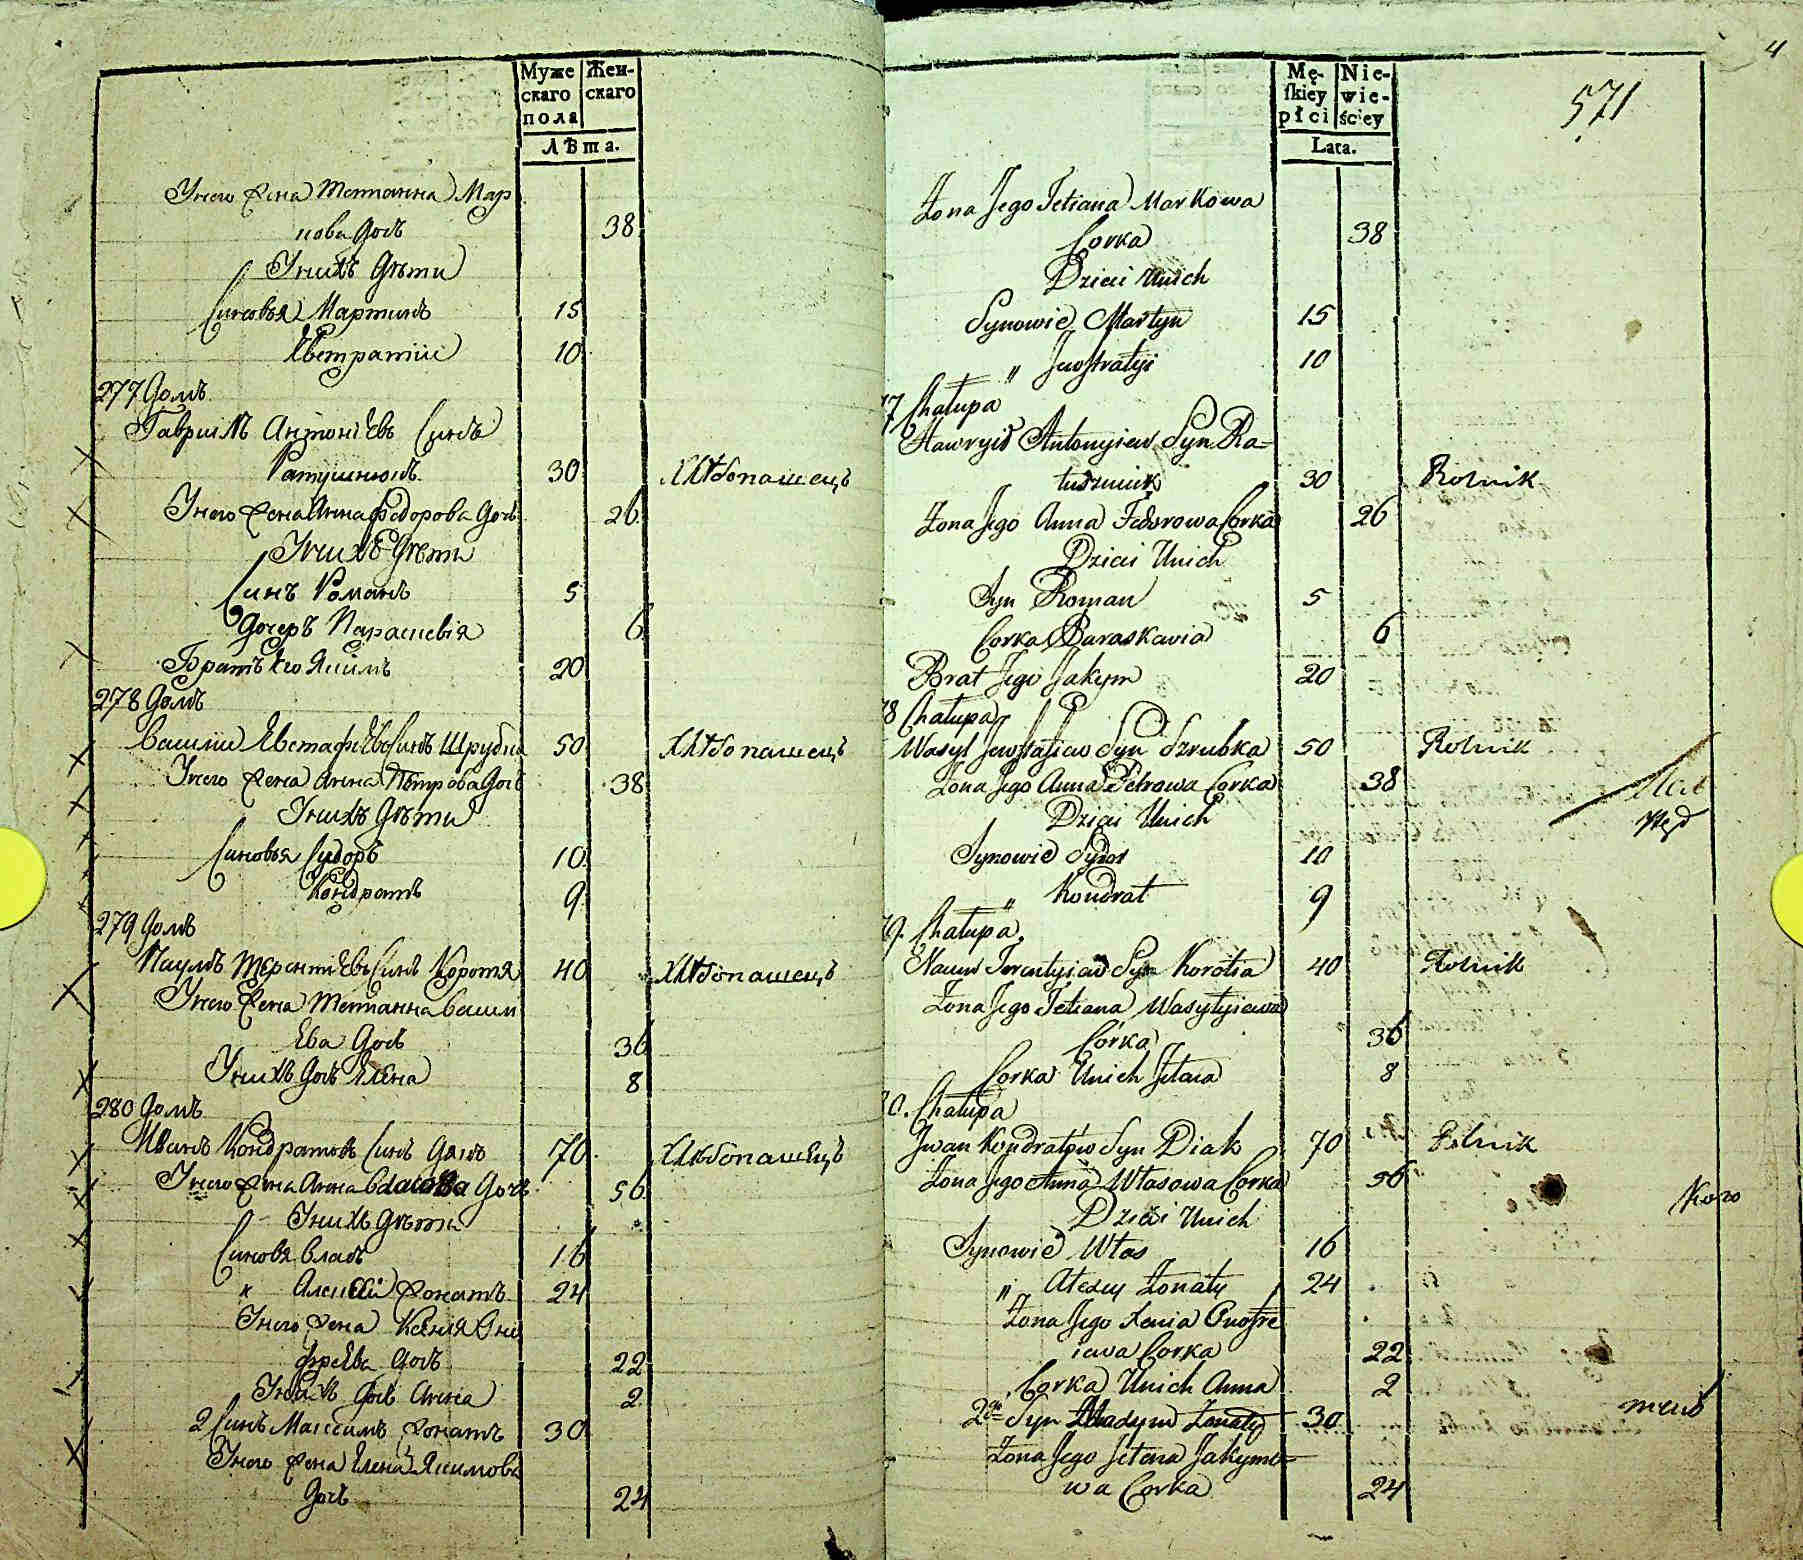 Муже
скаго
пола
Жен-
скаго
Лѣта.
У него жена Татианна Мар
кова дочь 38
У нихъ дѣти
Синовья Мартинъ 15
Евстратіи 10
277 домъ
Гавриилъ Антоніевъ Синъ
Ратушнюкъ 30 Хлѣбопашецъ
У него жена Анна Федорова дочь 26
У нихъ дѣти
Синъ Романъ 5
дочеръ Параскевія 6
Братъ его Якимъ 20
278 домъ
Василіи Евстафіевъ Синъ Шрубка 50 Хлѣбопашецъ
У него жена Анна Петрова дочь 38
У нихъ дѣти
Синовья Сидоръ 10
Кондратъ 9
279 домъ
Наумъ Терентіевъ Синъ Коротя 40 Хлѣбопашецъ
У него жена Татианна Васил
Ева дочь 36
У нихъ дочь Елена 8
280 домъ
Иванъ Кондратовъ Синъ Дякъ 70 Хлѣбопашецъ
У него жена Анна Власова дочь 56
У нихъ дѣти
Синовя Власъ 16
Алексѣй жонатъ 24
У него жена Ксения Они
фреева дочь 22
У нихъ дочь Анна 2
2 Синъ Максимъ жонатъ 30
У него жена Елена Якимова
дочь 24
4
Mę-
skiey
płci
Nie-
wie-
ściey
Lata.
571
Zona Jego Tetiana Markowa
Corka 38
Dzieci Unich
Synowie Martyn 15
„ Jewstratyi 10
77 Chałupa
Hawryło Antonyiew Syn Ra-
tuszniuk 30 Rolnik
Zona Jego Anna Fedorowa Corka 26
Dzieci Unich
Syn Roman 5
Corka Paraskawia 6
Brat Jego Jakym 20
78 Chałupa
Wasyl Jewstafiew Syn Szrubka 50 Rolnik
Zona Jego Anna Petrowa Corka 38
Dzieci Unich
Synowie Sydor 10
„ Kondrat 9
79. Chałupa
Naum Terentyiew Syn Korotia 40 Rolnik
Zona Jego Tetiana Wasylyiewa
Córka 36
Corka Unich Jelena 8
80. Chałupa
Jwan Kondratów Syn Diak 70 Rolnik
Zona Jego Anna Własowa Corka 56
Dzieci Unich
Synowie Włas 16
„ Alexey Zonaty 24
Zona Jego Xenia Onofre
iewa Corka 22
Corka Unich Anna 2
2gi Syn Zonaty 30
Zona Jego Jelena Jakymo-
wa Corka 24